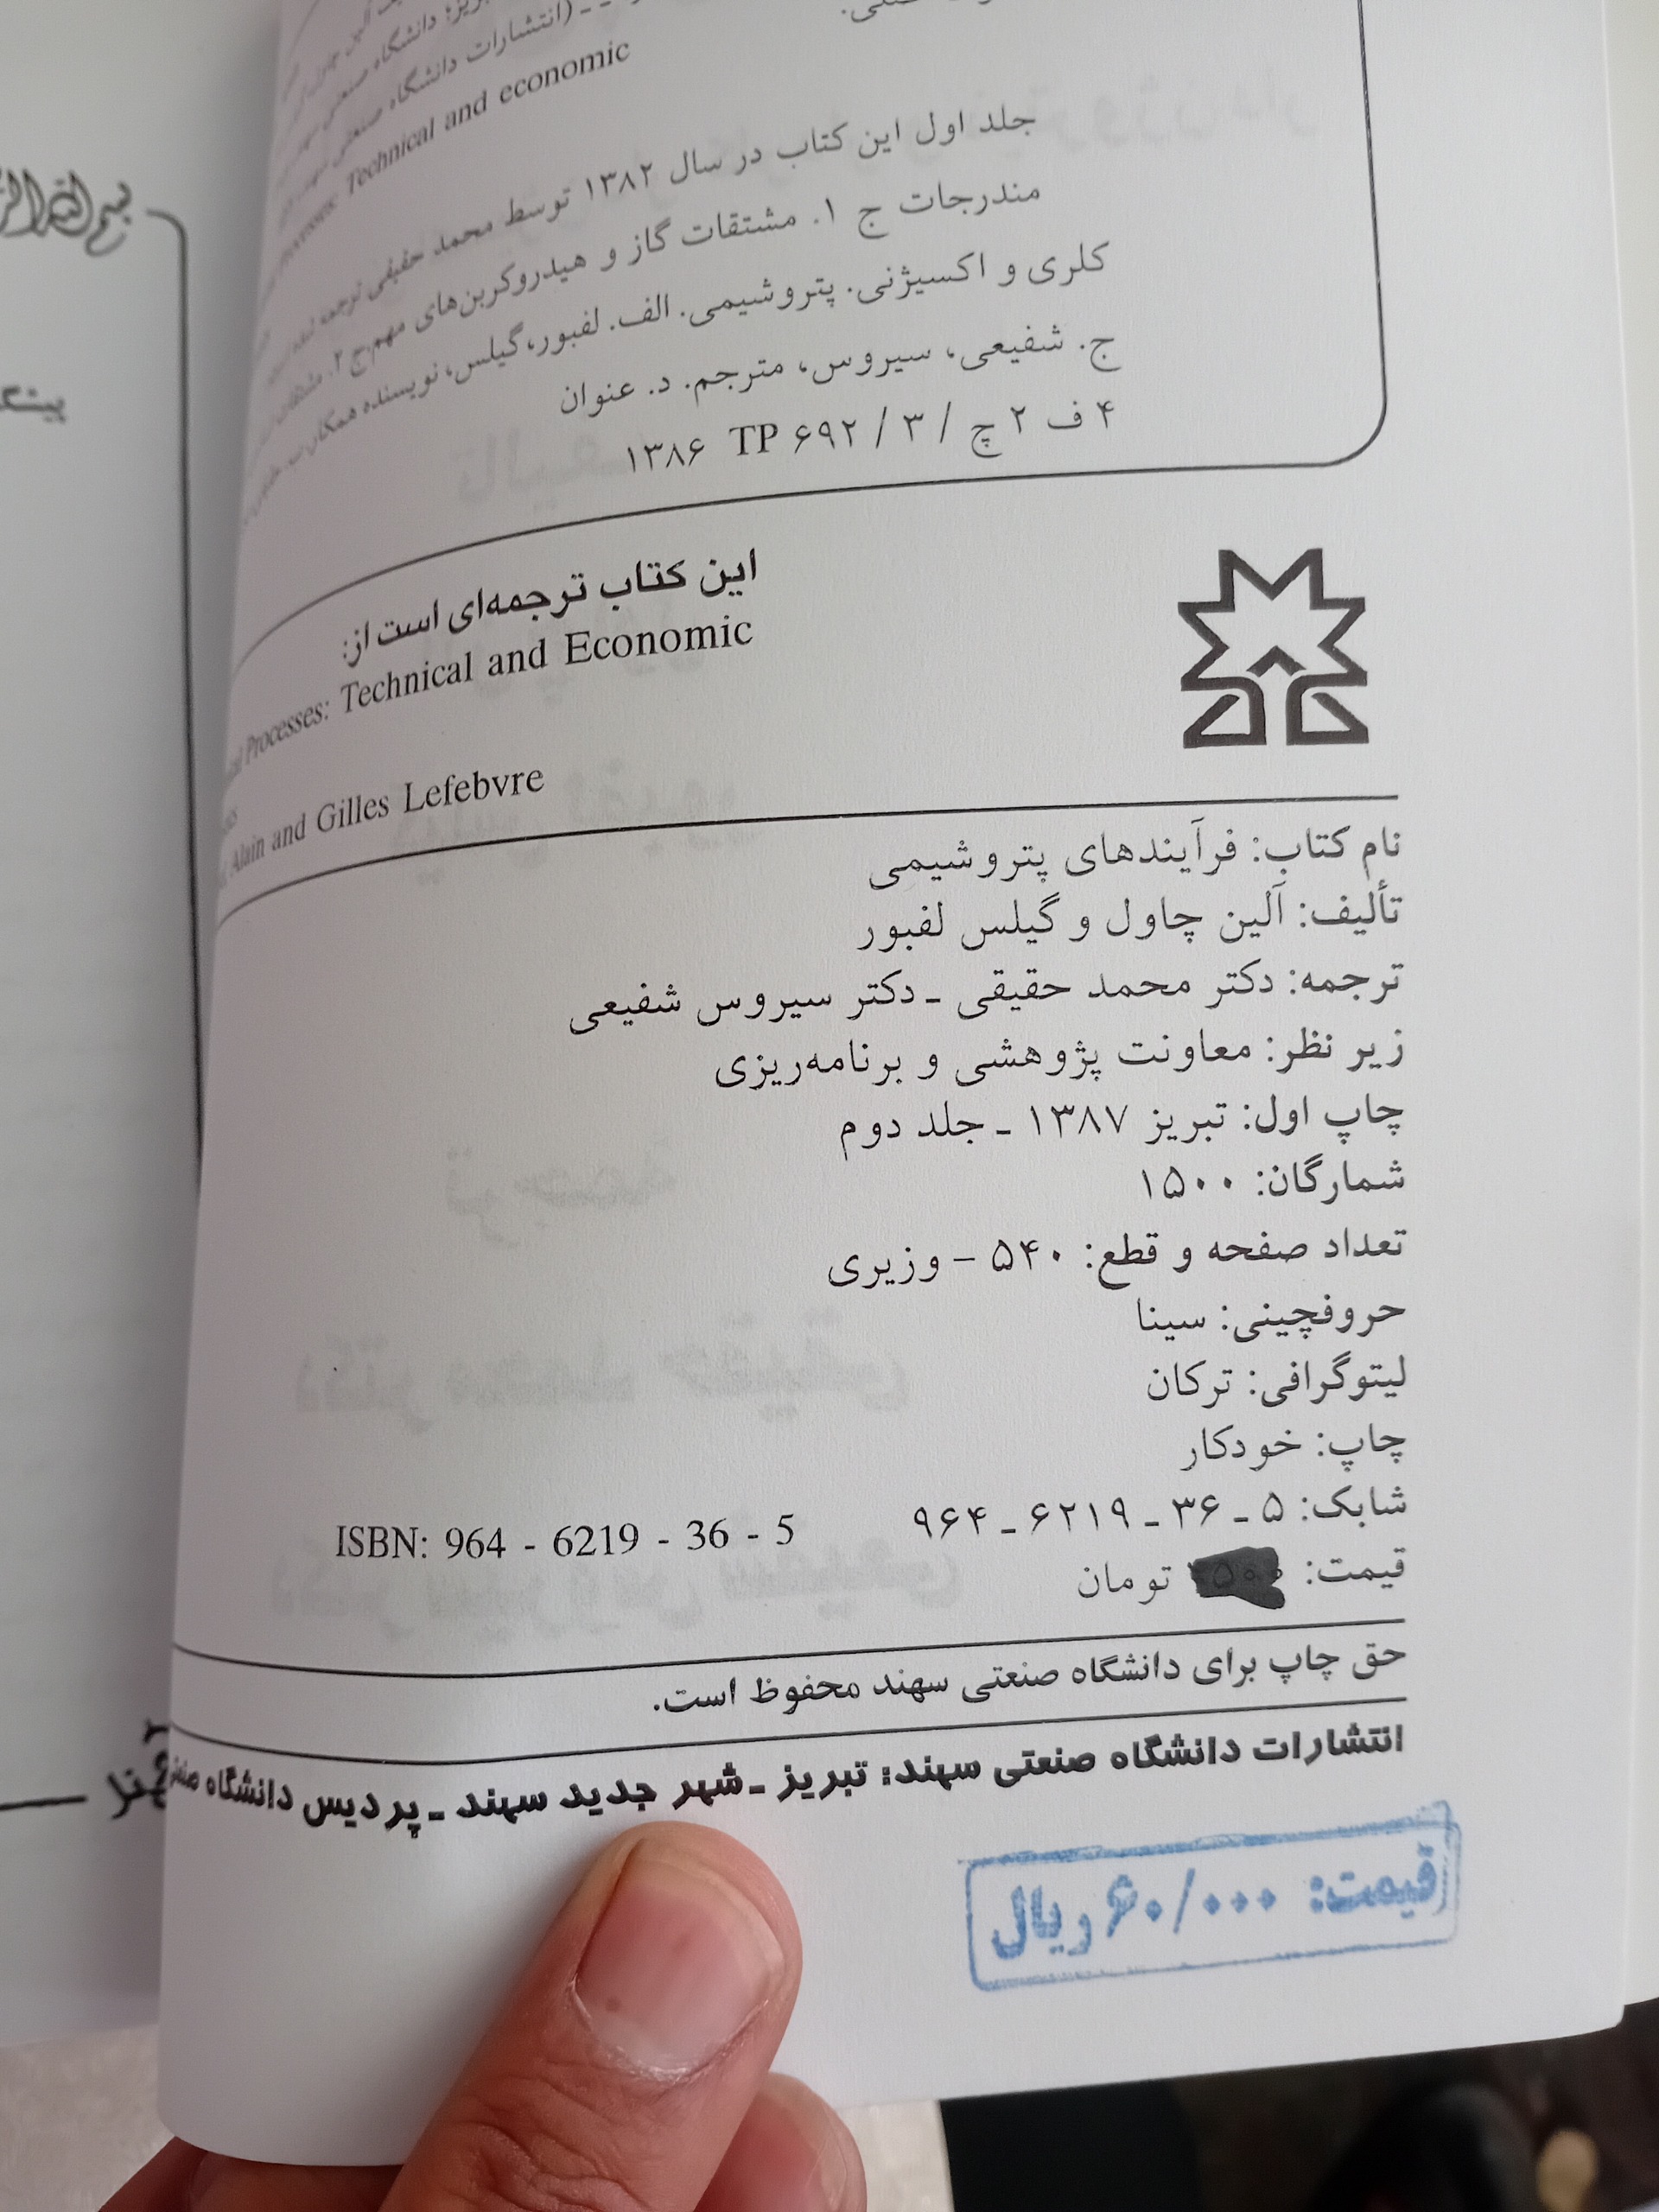 بسم الله الر
دانشگاه صنعتی
(انتشارات دانشگاه صنعتی
Processes: Technical and economic
جلد اول این کتاب در سال ۱۳۸۲ توسط محمد حقیقی ترجمه
مندرجات ج ۱. مشتقات گاز و هیدروکربن‌های مهم.ج ۲. مشتقات
کلری و اکسیژنی. پتروشیمی. الف. لفبور،گیلس، نویسنده همکار.ب.
ج. شفیعی، سیروس، مترجم. د. عنوان
۴ ف ۲ چ / ۳ / ۶۹۲ TP ۱۳۸۶
این کتاب ترجمه‌ای است از:
Processes: Technical and Economic
Alain and Gilles Lefebvre
نام کتاب: فرآیندهای پتروشیمی
تألیف: آلین چاول و گیلس لفبور
ترجمه: دکتر محمد حقیقی ـ دکتر سیروس شفیعی
زیر نظر: معاونت پژوهشی و برنامه‌ریزی
چاپ اول: تبریز ۱۳۸۷ ـ جلد دوم
شمارگان: ۱۵۰۰
تعداد صفحه و قطع: ۵۴۰ – وزیری
حروفچینی: سینا
لیتوگرافی: ترکان
چاپ: خودکار
شابک: ۵ ـ ۳۶ ـ ۶۲۱۹ ـ ۹۶۴ ISBN: 964 - 6219 - 36 - 5
قیمت: تومان
حق چاپ برای دانشگاه صنعتی سهند محفوظ است.
انتشارات دانشگاه صنعتی سهند: تبریز ـ شهر جدید سهند ـ پردیس دانشگاه
قیمت: ۶۰/۰۰۰ ریال